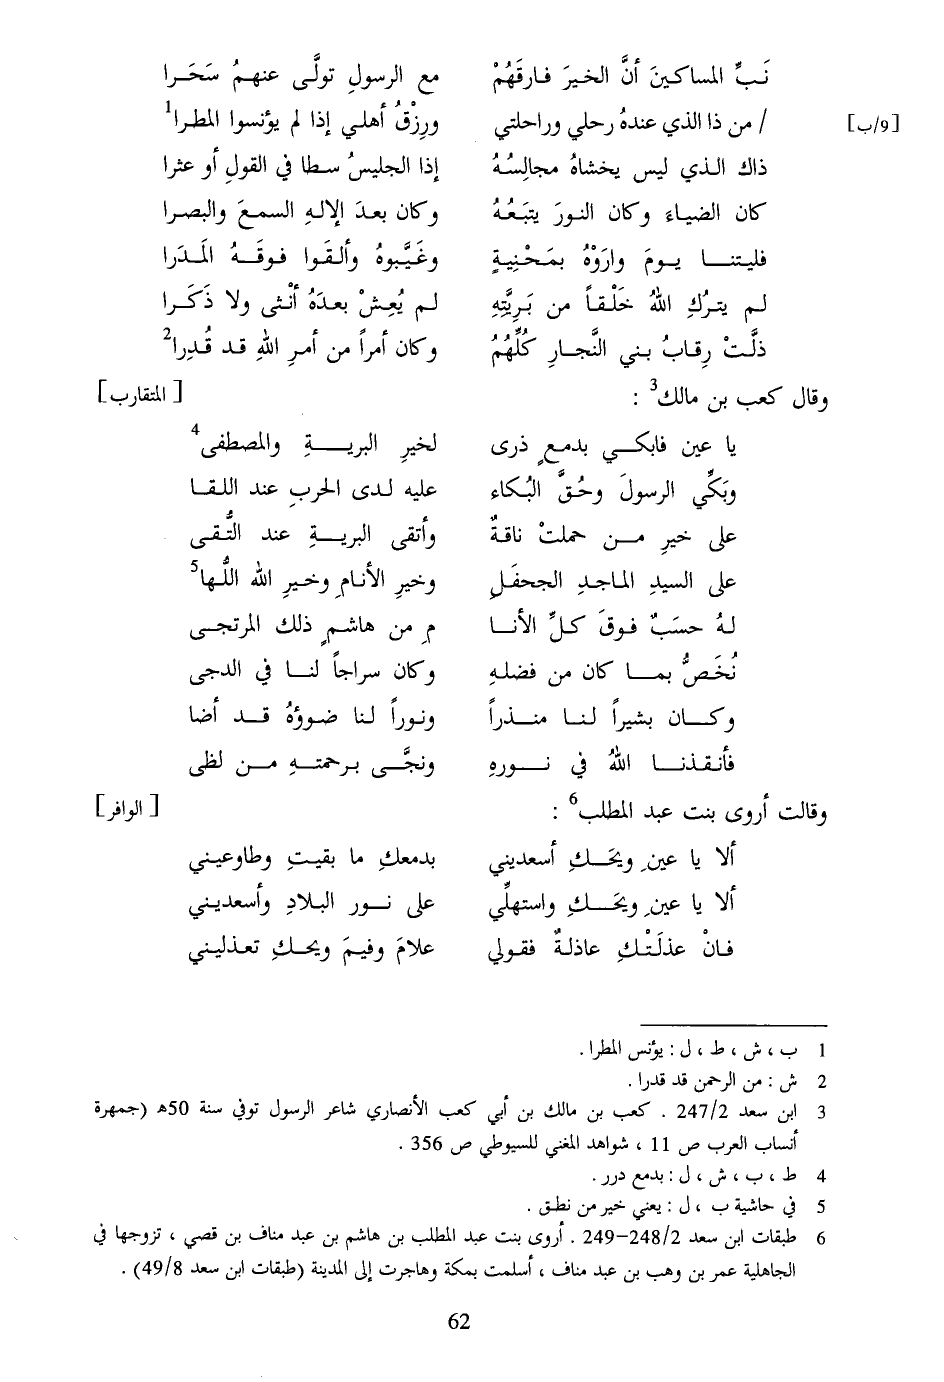 نَبِّ المساكينَ أنَّ الخيرَ فارقَهُمْ مع الرسولِ تولَّى عنهمُ سَحَرا
[9/ب] / من ذا الذي عندهُ رحلي وراحلتي ورِزْقُ أهلي إذا لم يؤنسوا المطرا1
ذاك الذي ليس يخشاهُ مجالِسُهُ إذا الجليسُ سطا في القولِ أو عثرا
كان الضياءَ وكان النورَ يتبَعُهُ وكان بعدَ الإلهِ السمعَ والبصرا
فليتنا يومَ وارَوْهُ بمَحْنِيةٍ وغَيَّبوهُ وألقَوا فوقَهُ المَدَرا
لم يترُكِ اللهُ خَلْقاً من بَريَّتِهِ لم يُعِشْ بعدَهُ أنْثى ولا ذَكَرا
ذلَّتْ رِقابُ بني النَّجارِ كُلِّهُمُ وكان أمراً من أمرِ اللهِ قد قُدِرا2
وقال كعب بن مالك3 : [ المتقارب]
يا عين فابكي بدمعٍ ذرى لخيرِ البريةِ والمصطفى4
وبَكِّي الرسولَ وحُقَّ البُكاء عليه لدى الحربِ عند اللقا
على خيرِ من حملتْ ناقةٌ وأتقى البريةِ عند التُّقى
على السيدِ الماجدِ الجحفَلِ وخيرِ الأنامِ وخيرِ الله اللُّها5
لهُ حسَبٌ فوقَ كلِّ الأنا مِ من هاشمٍ ذلك المرتجى
نُخَصُّ بما كان من فضلهِ وكان سراجاً لنا في الدجى
وكان بشيراً لنا منذراً ونوراً لنا ضوؤهُ قد أضا
فأنقذنا اللهُ في نورهِ ونجَّى برحمتهِ من لظى
وقالت أروى بنت عبد المطلب6 : [ الوافر]
ألا يا عينِ ويحَكِ أسعديني بدمعكِ ما بقيتِ وطاوعيني
ألا يا عينِ ويحَكِ واستهلِّي على نور البلادِ وأسعديني
فانْ عذلَتْكِ عاذلةٌ فقولي علامَ وفيمَ ويحكِ تعذليني
1 ب ، ش ، ط ، ل : يؤنس المطرا .
2 ش : من الرحمن قد قدرا .
3 ابن سعد 247/2 . كعب بن مالك بن أبي كعب الأنصاري شاعر الرسول توفي سنة 50هـ (جمهرة
أنساب العرب ص 11 ، شواهد المغني للسيوطي ص 356 .
4 ط ، ب ، ش ، ل : بدمع درر .
5 في حاشية ب ، ل : يعني خير من نطق .
6 طبقات ابن سعد 248/2–249 . أروى بنت عبد المطلب بن هاشم بن عبد مناف بن قصي ، تزوجها في
الجاهلية عمر بن وهب بن عبد مناف ، أسلمت بمكة وهاجرت إلى المدينة (طبقات ابن سعد 49/8) .
62